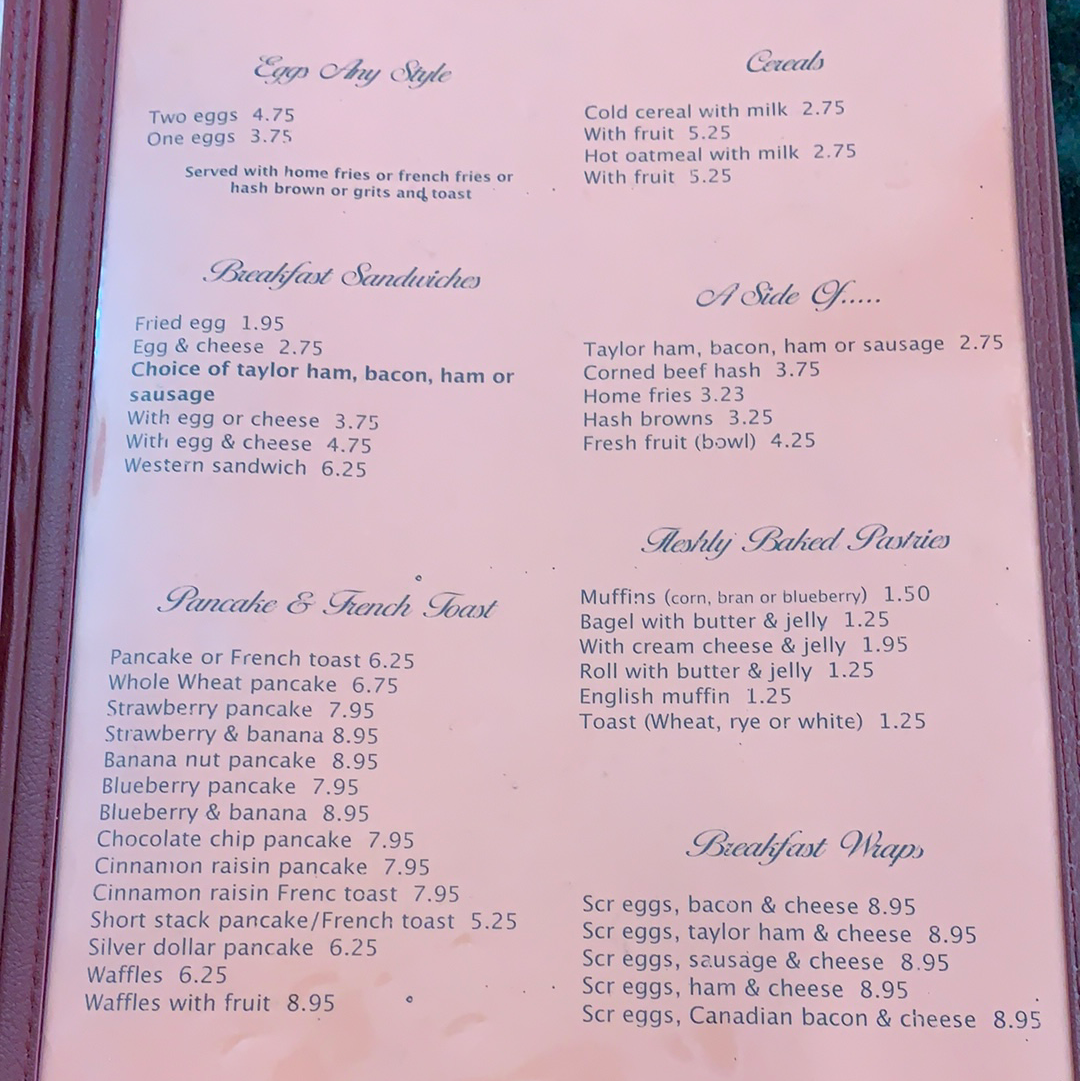 Eggs Any Style
Two eggs 4.75
One eggs 3.75
Served with home fries or french fries or
hash brown or grits and toast
Breakfast Sandwiches
Fried egg 1.95
Egg & cheese 2.75
Choice of taylor ham, bacon, ham or
sausage
With egg or cheese 3.75
With egg & cheese 4.75
Western sandwich 6.25
Pancake & French Toast
Pancake or French toast 6.25
Whole Wheat pancake 6.75
Strawberry pancake 7.95
Strawberry & banana 8.95
Banana nut pancake 8.95
Blueberry pancake 7.95
Blueberry & banana 8.95
Chocolate chip pancake 7.95
Cinnamon raisin pancake 7.95
Cinnamon raisin Frenc toast 7.95
Short stack pancake/French toast 5.25
Silver dollar pancake 6.25
Waffles 6.25
Waffles with fruit 8.95
Cereals
Cold cereal with milk 2.75
With fruit 5.25
Hot oatmeal with milk 2.75
With fruit 5.25
A Side Of.....
Taylor ham, bacon, ham or sausage 2.75
Corned beef hash 3.75
Home fries 3.23
Hash browns 3.25
Fresh fruit (bowl) 4.25
Fleshly Baked Pastries
Muffins (corn, bran or blueberry) 1.50
Bagel with butter & jelly 1.25
With cream cheese & jelly 1.95
Roll with butter & jelly 1.25
English muffin 1.25
Toast (Wheat, rye or white) 1.25
Breakfast Wraps
Scr eggs, bacon & cheese 8.95
Scr eggs, taylor ham & cheese 8.95
Scr eggs, sausage & cheese 8.95
Scr eggs, ham & cheese 8.95
Scr eggs, Canadian bacon & cheese 8.95